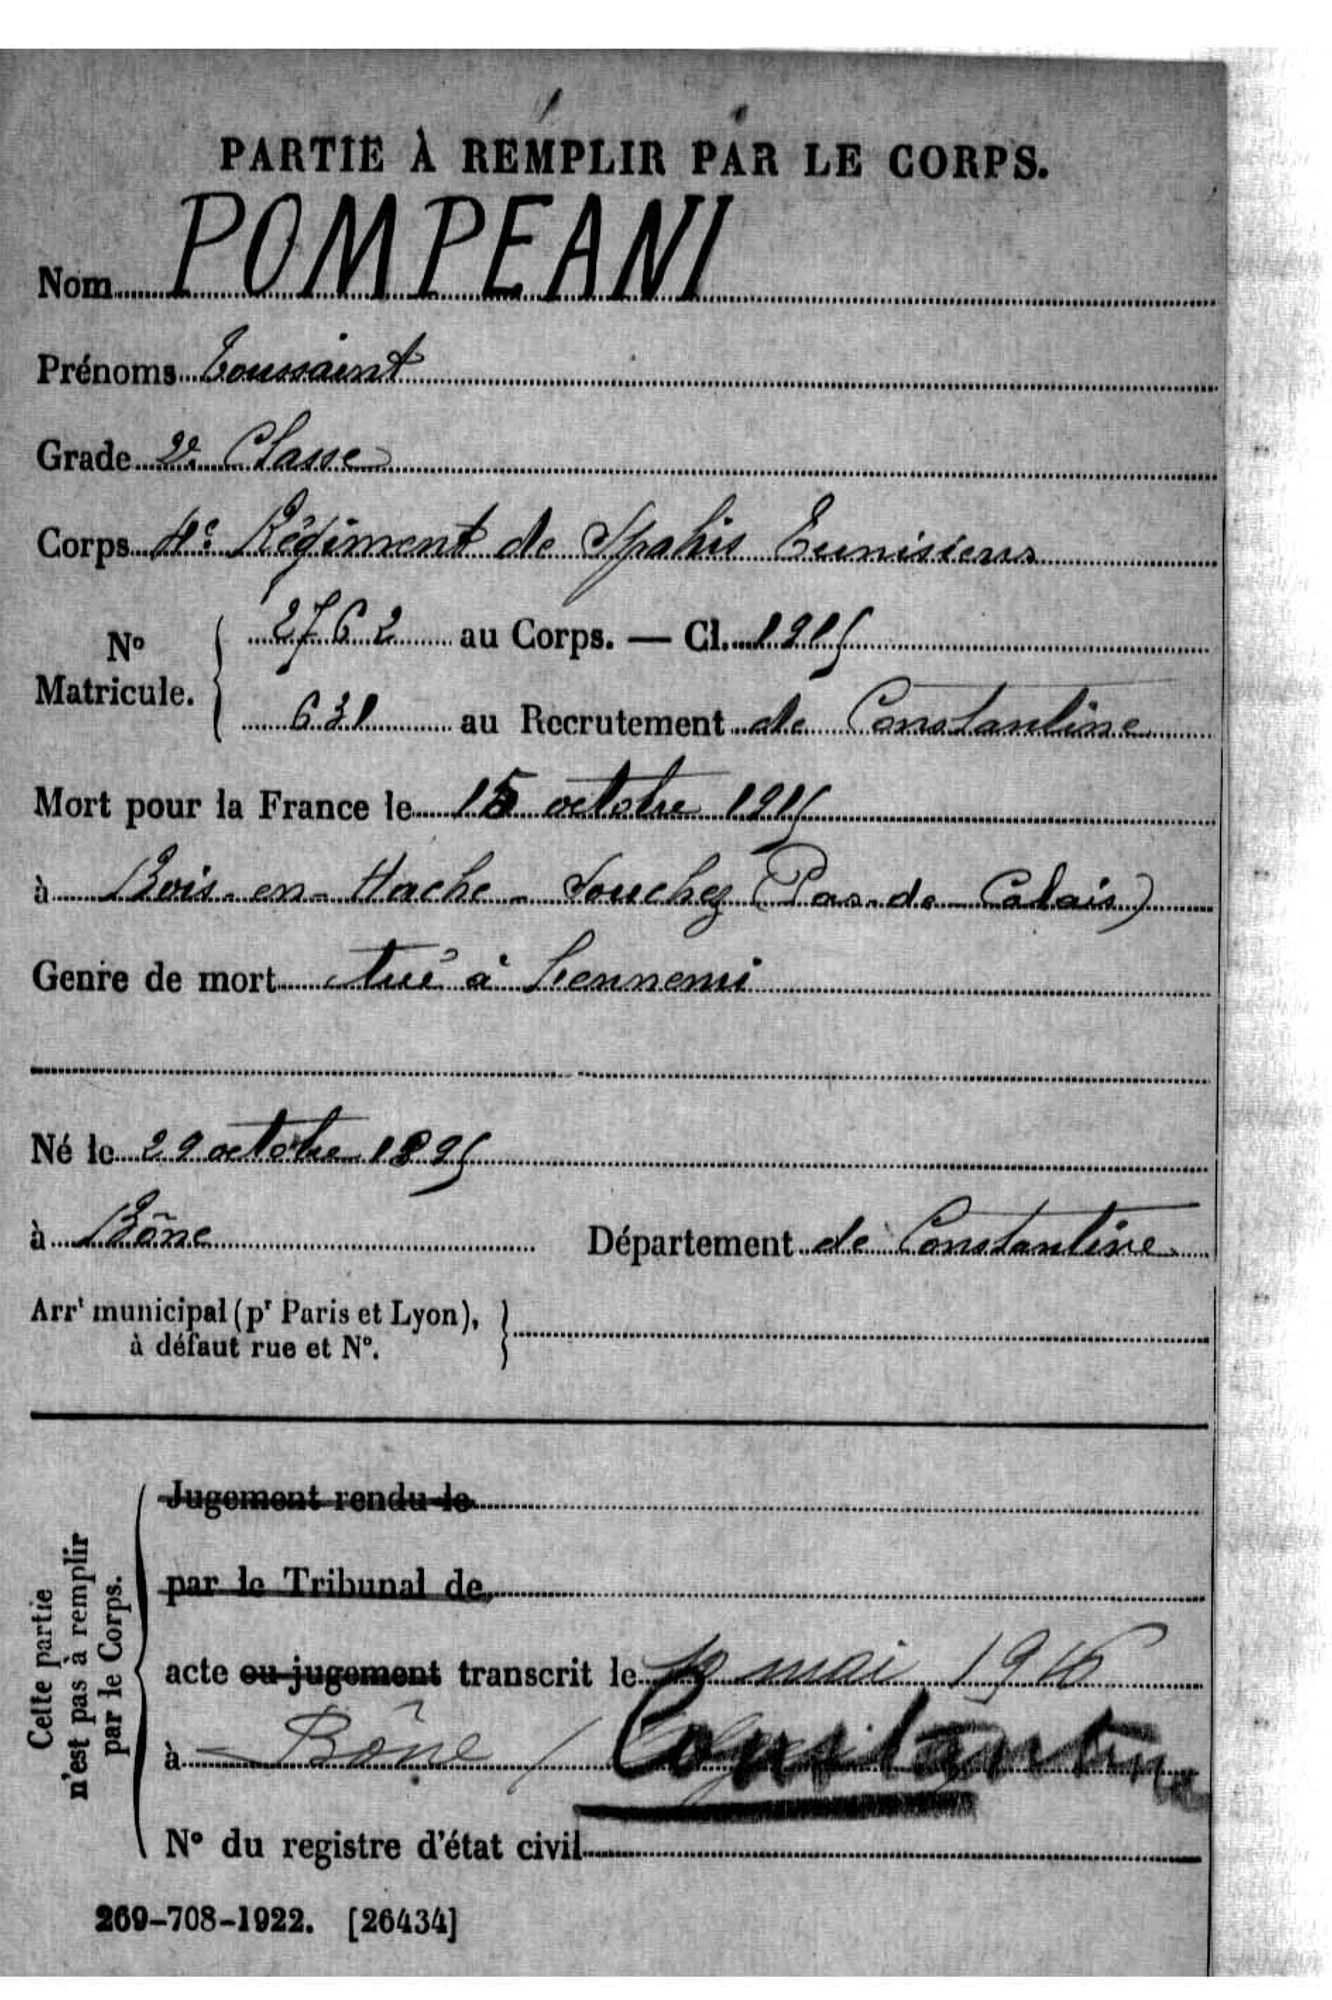 PARTIE À REMPLIR PAR LE CORPS.
Nom POMPEANI
Prénoms Toussaint
Grade 2e Classe
Corps 4e Régiment de Spahis Tunisiens
No Matricule. 2762 au Corps. — Cl. 1915
631 au Recrutement de Constantine
Mort pour la France le 15 octobre 1915
à Bois-en-Hache-Souchez (Pas-de-Calais)
Genre de mort tué à l'ennemi
Né le 29 octobre 1895
à Bône Département de Constantine
Arrt municipal (pr Paris et Lyon),
à défaut rue et No.
Cette partie
n'est pas à remplir
par le Corps.
Jugement rendu le
par le Tribunal de
acte ou jugement transcrit le mai 1916
à Bône / Constantine
No du registre d'état civil
269-708-1922. [26434]